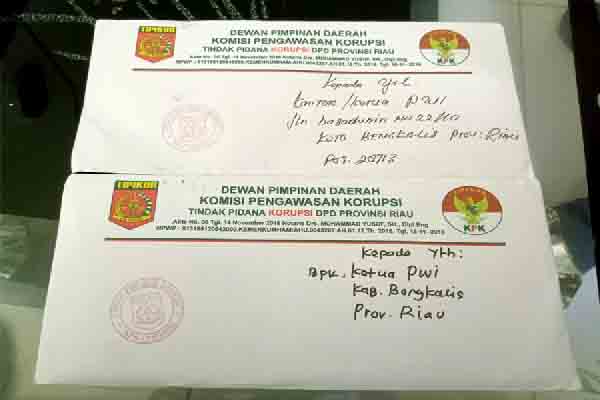 TIPIKOR
DEWAN PIMPINAN DAERAH
KOMISI PENGAWASAN KORUPSI
TINDAK PIDANA KORUPSI DPD PROVINSI RIAU
KPK
Kepada Yth
Kantor/Ketua PWI
Jln
Kota Bengkalis Prov: Riau
Pos. 28713
TIPIKOR
DEWAN PIMPINAN DAERAH
KOMISI PENGAWASAN KORUPSI
TINDAK PIDANA KORUPSI DPD PROVINSI RIAU
Akte No. 06 Tgl. 14 November 2016 Notaris Drs. MUHAMMAD YUSUF, SH., Dipl Eng
KPK
Kepada Yth:
Bpk. Ketua PWI
Kab. Bengkalis
Prov. Riau